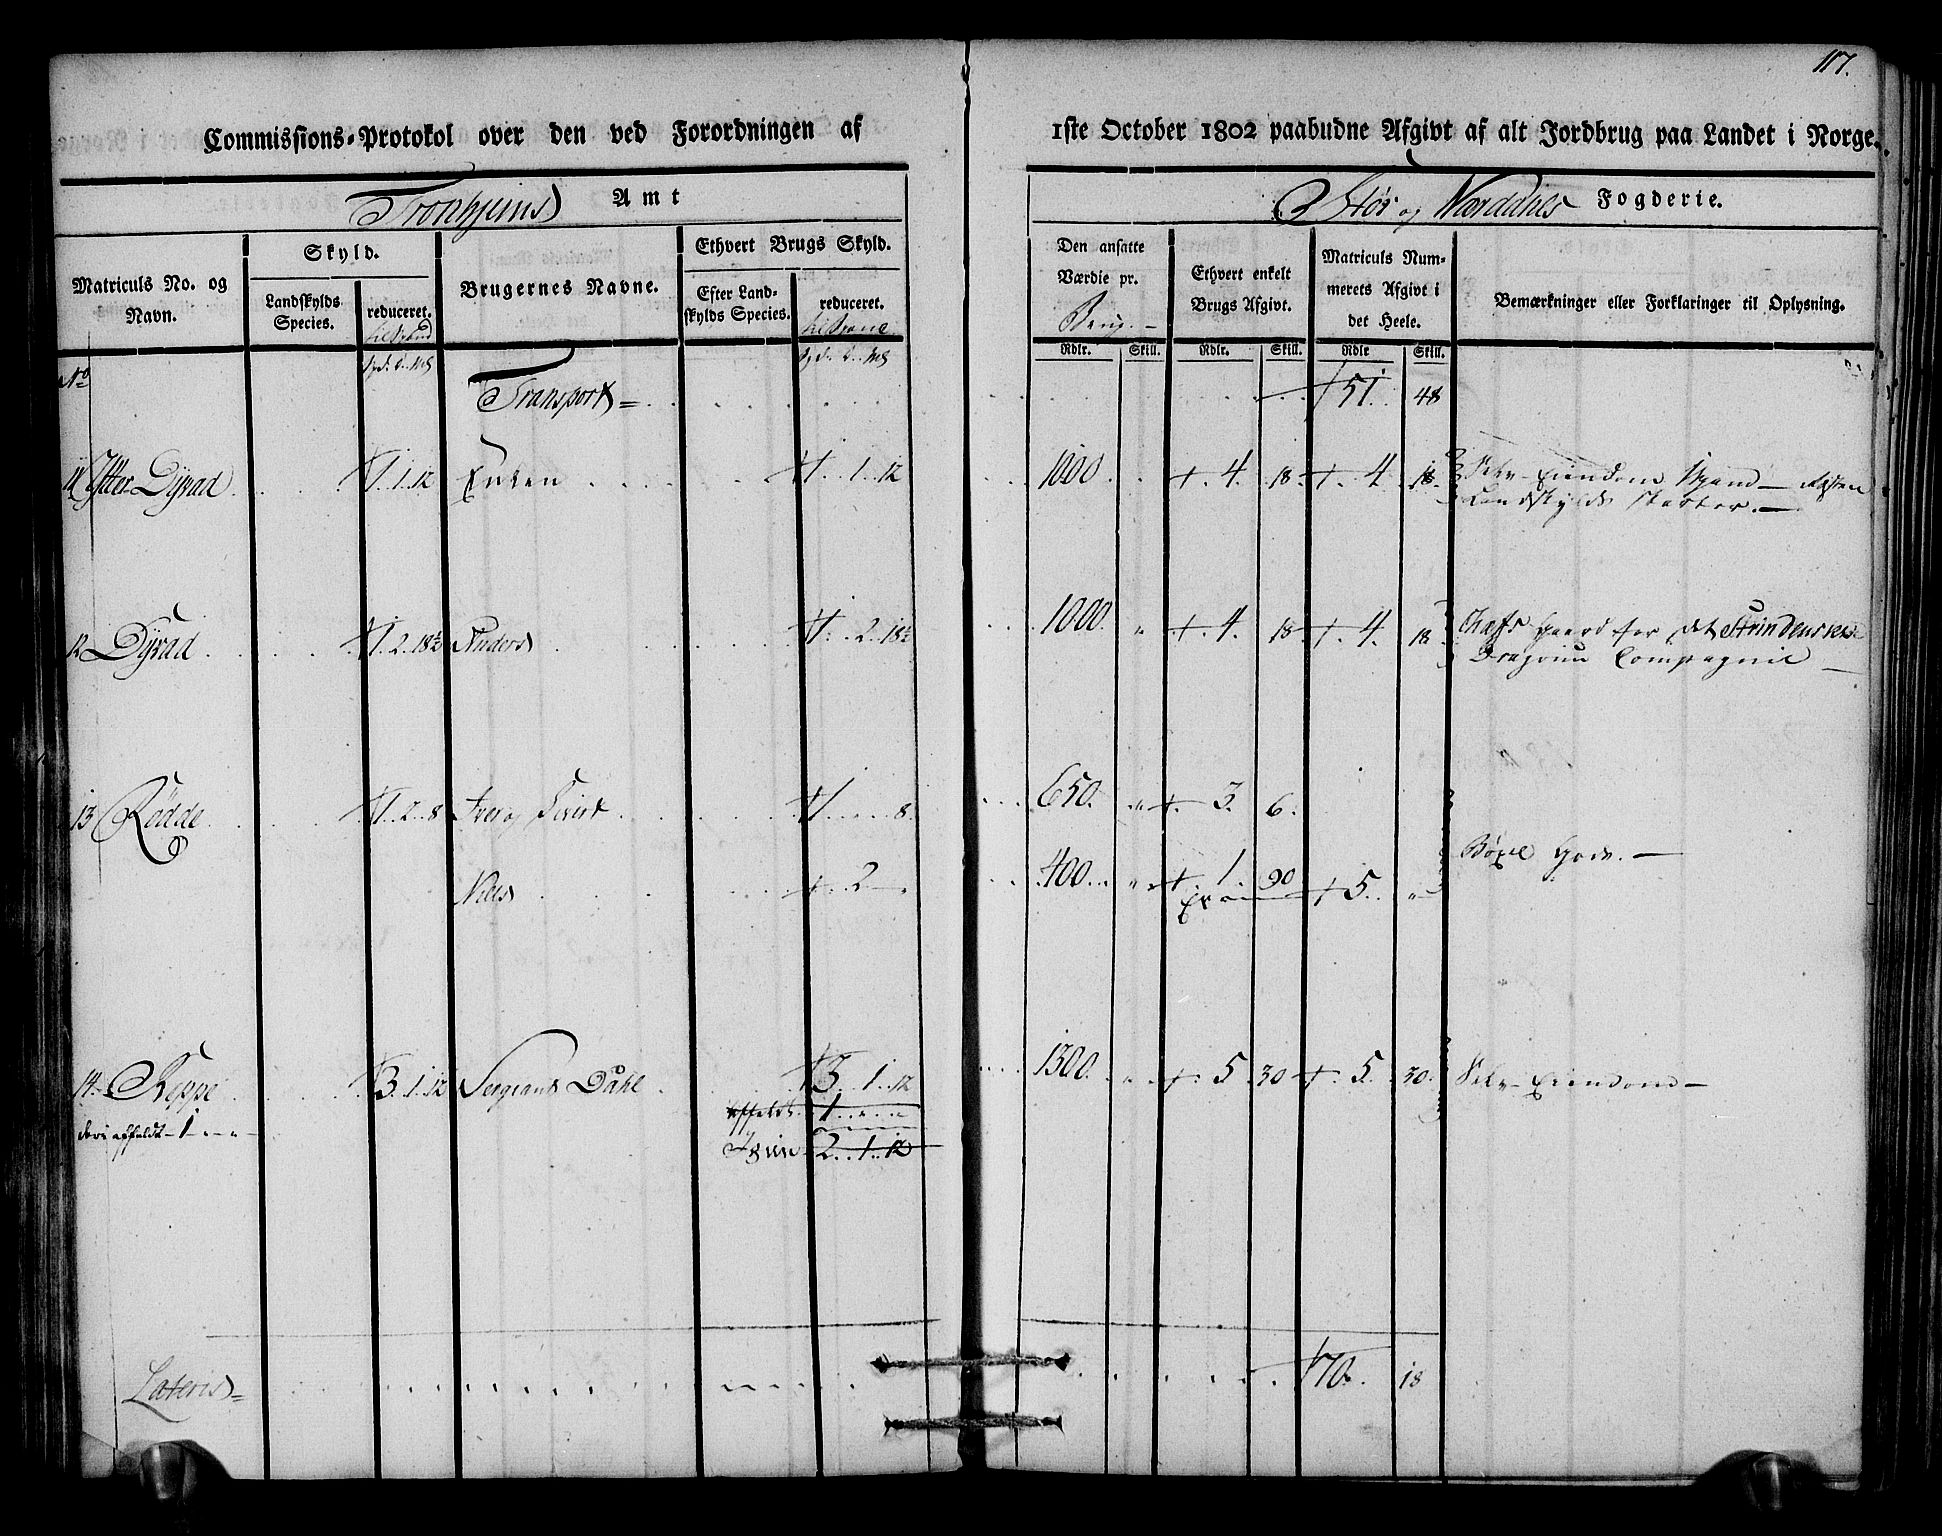 117.
Commissions-Protokol over den ved Forordningen af 1ste October 1802 paabudne Afgivt af alt Jordbrug paa Landet i Norge.
Tronhjems Amt
Stør og Værdahls Fogderie.
Matriculs No. og Navn.
Skyld.
Landskylds Species.
reduceret.
Brugernes Navne.
Ethvert Brugs Skyld.
Efter Landskylds Species.
reduceret.
Den ansatte Værdie pr. Brug.
Ethvert enkelt Brugs Afgivt.
Matriculs Nummerets Afgivt i det Heele.
Bemærkninger eller Forklaringer til Oplysning.
Rdlr. Skill. Rdlr. Skill. Rdlr Skill.
No
Transport = 51 48
11 Ytter Dyrad 1. 1. 12 Enken 1. 1. 12 1000 4. 18 4. 18. Selv Eiendom
Landskylds
12 Dyrad 1. 2. 18½ Anders 1. 2. 18½ 1000 " 4. 18 4. 18 Chefs Gaard for det Strindenske
Dragoun Compagnie
13 Rödde 1. 2. 8 Iver og Sivert 1. 8. 650. " 3. 6.
Böxel Gods.
Niels 2 400 " 1. 90 5. "
14. Reppe 3. 1. 12 Sergeant Dahl 3. 1. 12 1300. " 5. 30 5. 30. Selv Eiendom
affældt 1 " "
deri affældt 1 " "
Igien 2. 1. 12
Lateris = 70. 18